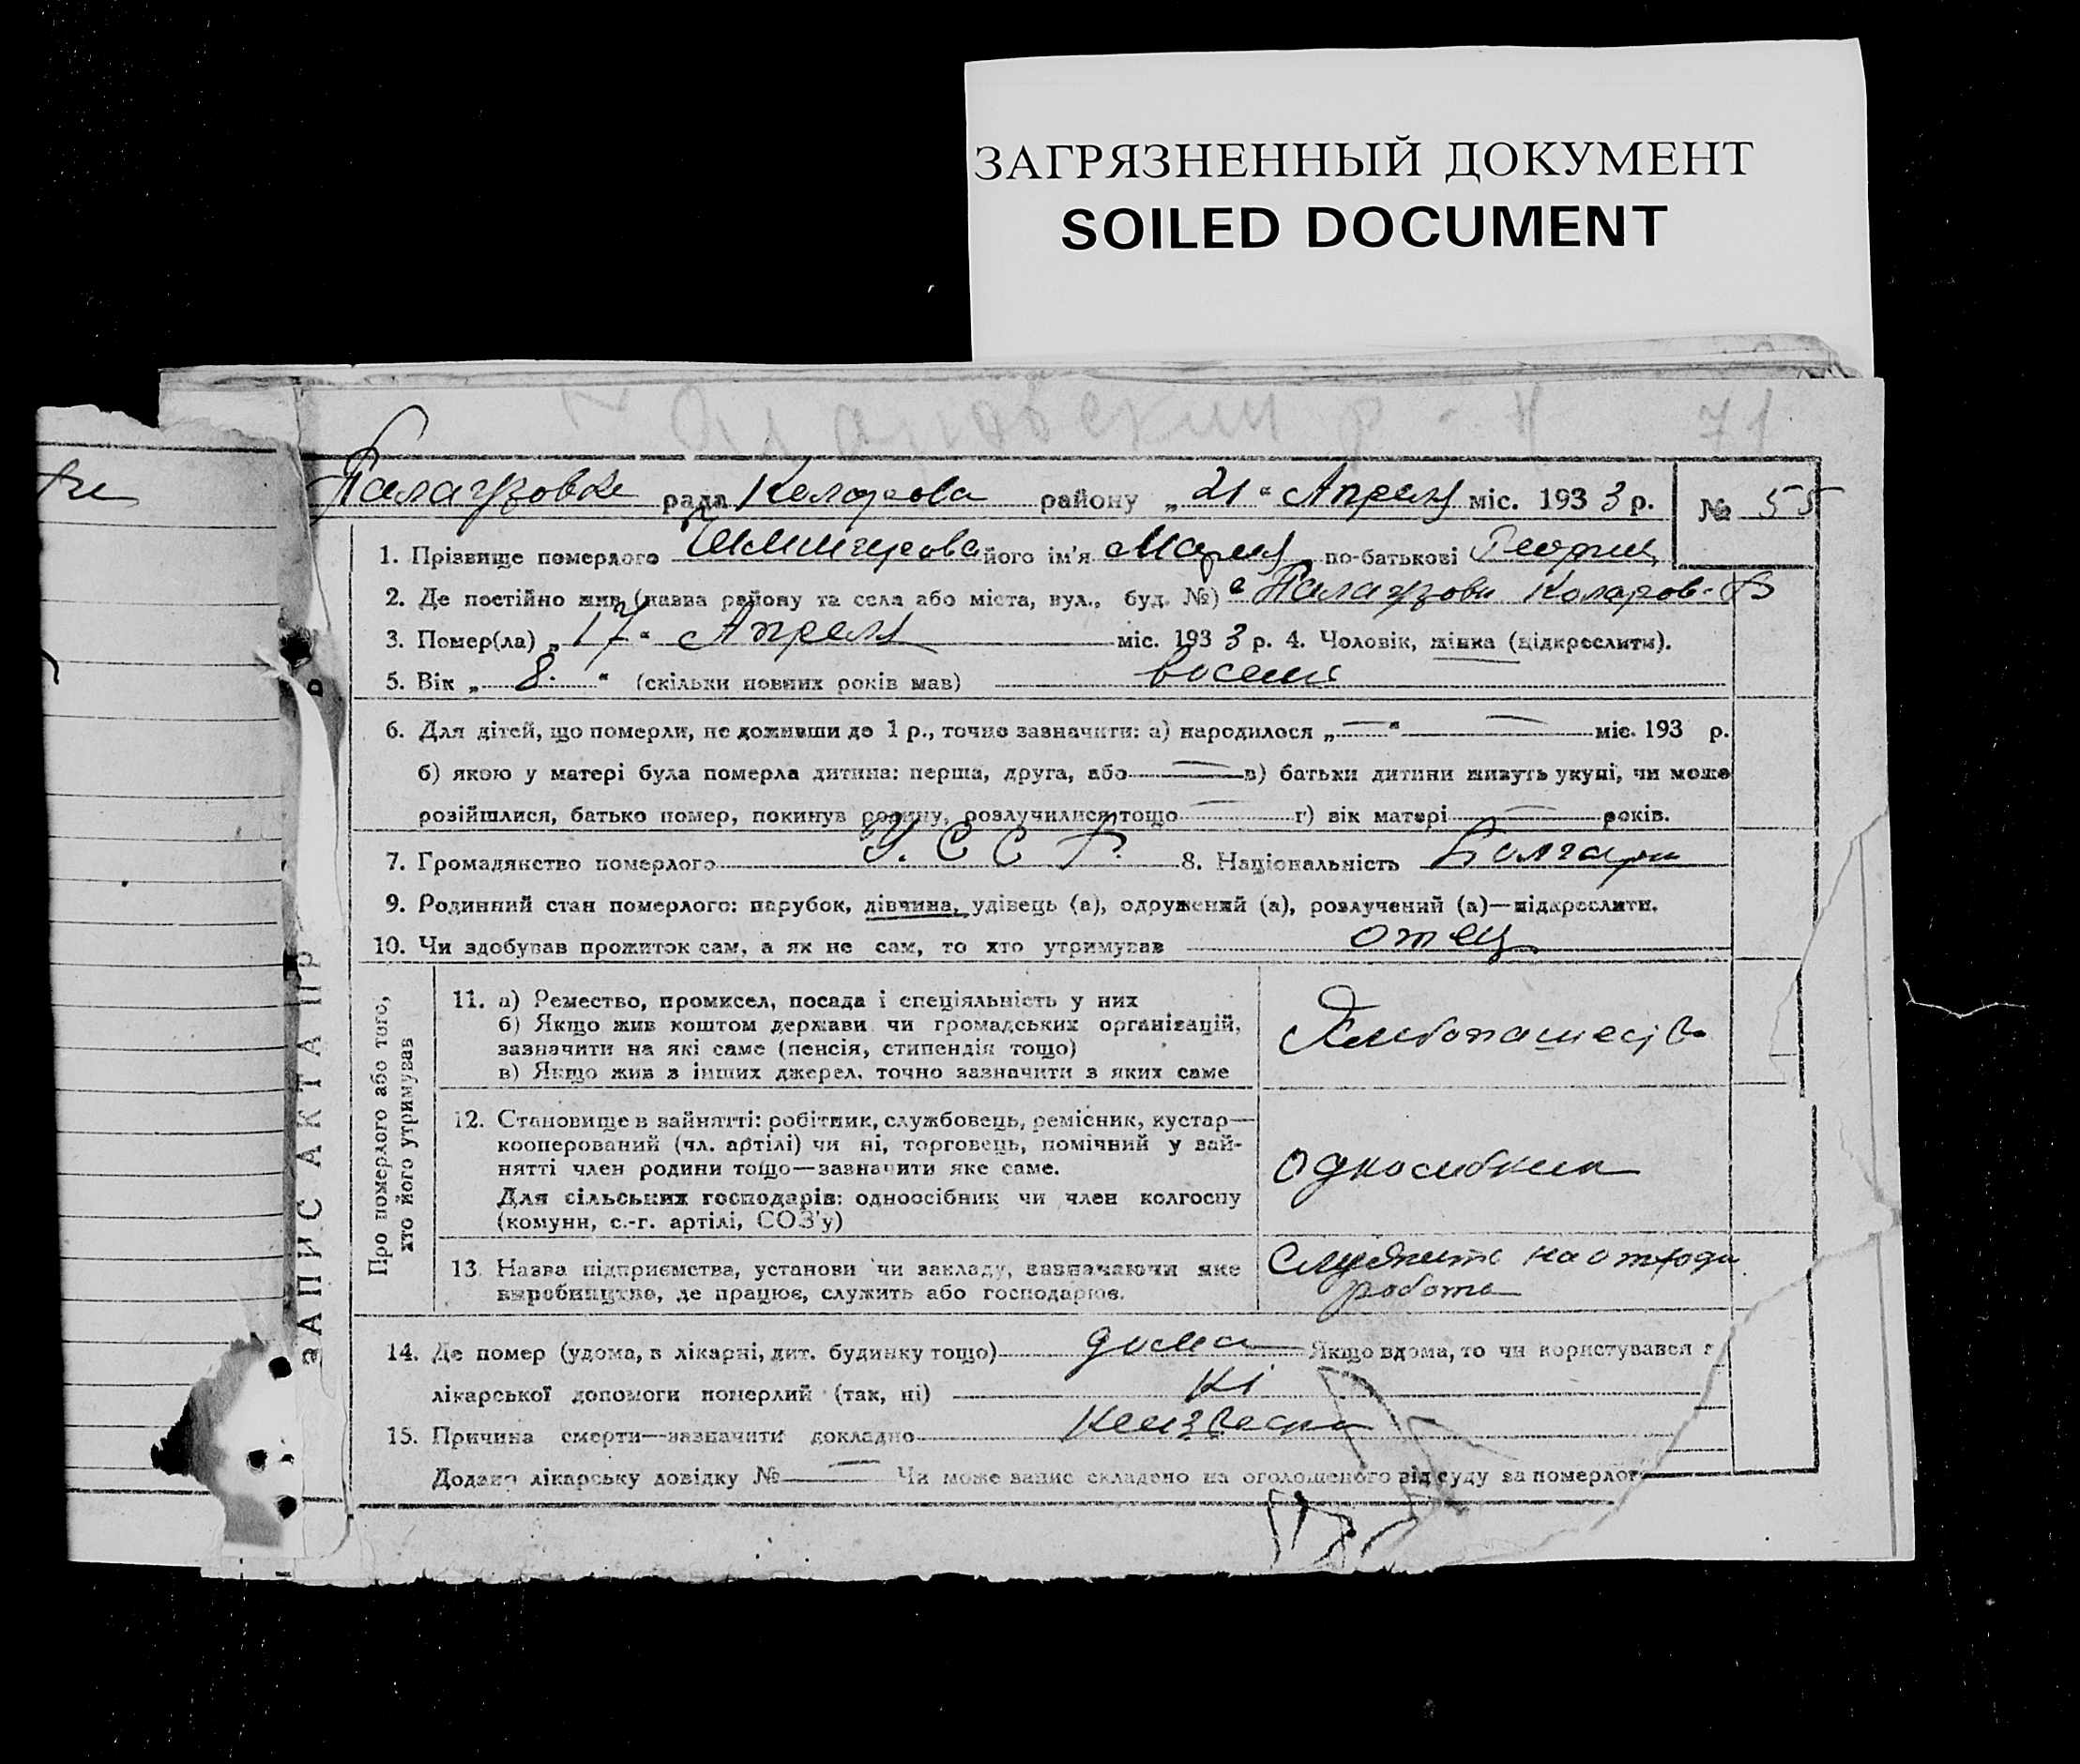 ЗАГРЯЗНЕННЫЙ ДОКУМЕНТ
SOILED DOCUMENT
р-н 71
рада Коларова району „21“ Апреля міс. 1933 р. № 55
1. Прізвище померлого його ім'я Мария по-батькові Георгий
2. Де постійно жив (назва району та села або міста, вул., буд. №) с Коларов.
3. Помер(ла) „17“ Апреля міс. 1933 р. 4. Чоловік, жінка (підкреслити).
5. Вік „8.“ (скільки повних років мав) восемь
6. Для дітей, що померли, не доживши до 1 р., точно зазначити: а) народилося „—“ — міс. 193 р.
б) якою у матері була померла дитина: перша, друга, або — в) батьки дитини живуть укупі, чи може
розійшлися, батько помер, покинув родину, розлучилися тощо — г) вік матері — років.
7. Громадянство померлого У. С С Р. 8. Національність Болгари
9. Родинний стан померлого: парубок, дівчина, удівець (а), одружений (а), розлучений (а)—підкреслити.
10. Чи здобував прожиток сам, а як не сам, то хто утримував отец
ЗАПИС АКТА ПР
Про померлого або того,
хто його утримував
11. а) Ремество, промисел, посада і спеціяльність у них
б) Якщо жив коштом держави чи громадських організацій,
зазначити на які саме (пенсія, стипендія тощо)
в) Якщо жив з інших джерел, точно зазначити з яких саме
Хлебопашество
12. Становище в зайнятті: робітник, службовець, ремісник, кустар—
кооперований (чл. артілі) чи ні, торговець, помічний у зай-
нятті член родини тощо—зазначити яке саме.
Для сільських господарів: одноосібник чи член колгоспу
(комуни, с.-г. артілі, СОЗ'у)
односибник
13. Назва підприємства, установи чи закладу, зазначаючи яке
виробництво, де працює, служить або господарює.
на
работе
14. Де помер (удома, в лікарні, дит. будинку тощо) дома Якщо вдома, то чи користувався з
лікарської допомоги померлий (так, ні) ні
15. Причина смерти—зазначити докладно
Додано лікарську довідку № — Чи може запис складено на оголошеного від суду за померлого